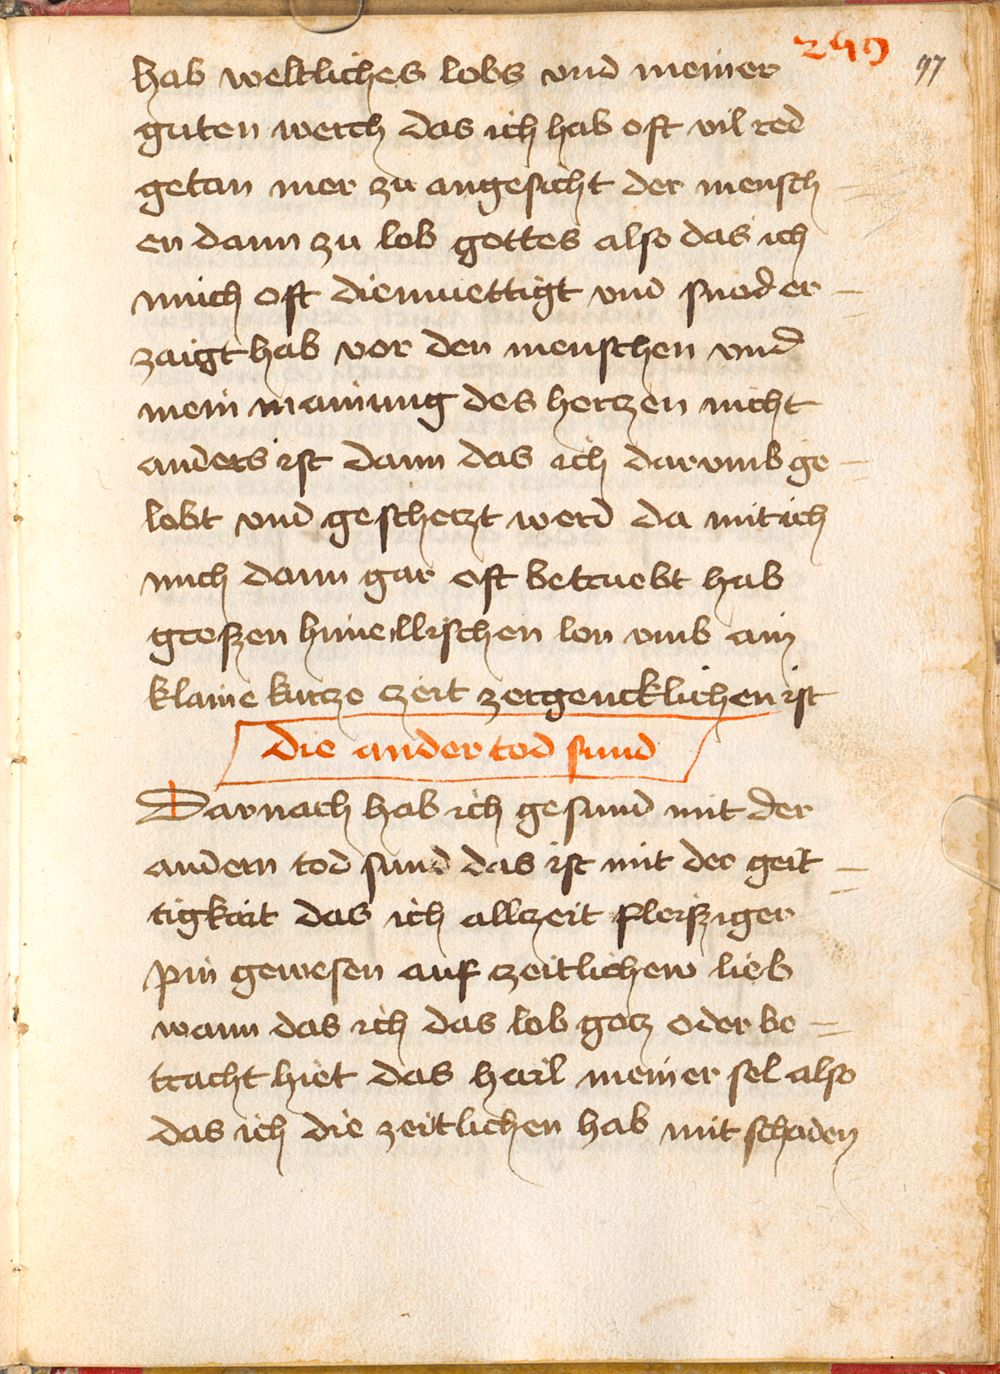 249
97
hab weltliches lobs vnd meiner
guten werch das ich hab oft vil red
getan mer zu angesicht der mensch
en dann zu lob gottes also das ich
mich oft diemuettigt vnd snod er
zaigt hab vor den menschen vnd
mein mainung des hertzen nicht
anders ist dann das ich darvmb ge
lobt vnd geschetzt werd da mit ich
mich dann gar oft betruebt hab
groszen himellischen lon vmb ain
klaine kurcze czeit zergencklichen ist
Die ander tod sund
Darnach hab ich gesund mit der
andern tod sund das ist mit der geit
tigkait das ich allczeit fleisziger
pin gewesen auf zeitlichew lieb
wann das ich das lob gotz oder be
tracht hiet das hail meiner sel also
das ich die zeitlichen hab mit schaden